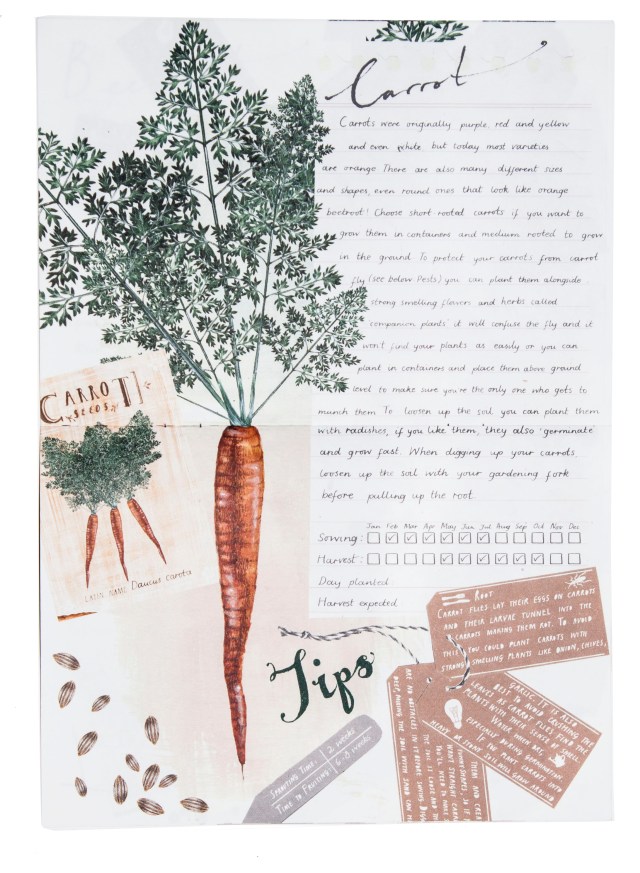 Carrot
Carrots were originally purple, red and yellow
and even white but today most varieties
are orange. There are also many different sizes
and shapes, even round ones that look like orange
beetroot! Choose short rooted carrots if you want to
grow them in containers and medium rooted to grow
in the ground. To protect your carrots from carrot
fly (see below Pests) you can plant them alongside
strong smelling flowers and herbs called
'companion plants' it will confuse the fly and it
won't find your plants as easily or you can
plant in containers and place them above ground
level to make sure you're the only one who gets to
munch them. To loosen up the soil you can plant them
with radishes, if you like them, they also germinate
and grow fast. When digging up your carrots,
loosen up the soil with your gardening fork
before pulling up the root.
Jan Feb Mar Apr May Jun Jul Aug Sep Oct Nov Dec
Sowing:
Harvest:
Day planted
Harvest expected
CARROT
SEEDS
LATIN NAME Daucus carota
Tips
SPROUTING TIME: 2 weeks
TIME TO FRUITING:
ROOT
CARROT FLIES LAY THEIR EGGS ON CARROTS
AND THEIR LARVAE TUNNEL INTO THE
CARROTS MAKING THEM ROT. TO AVOID
THIS YOU COULD PLANT CARROTS WITH
STRONG SMELLING PLANTS LIKE ONION, CHIVES,
GARLIC. IT IS ALSO
BEST TO AVOID CRUSHING THE
LEAVES AS CARROT FLIES FIND THE
PLANTS WITH THEIR SENSE OF SMELL.
WATER WHEN DRY,
ESPECIALLY DURING GERMINATION